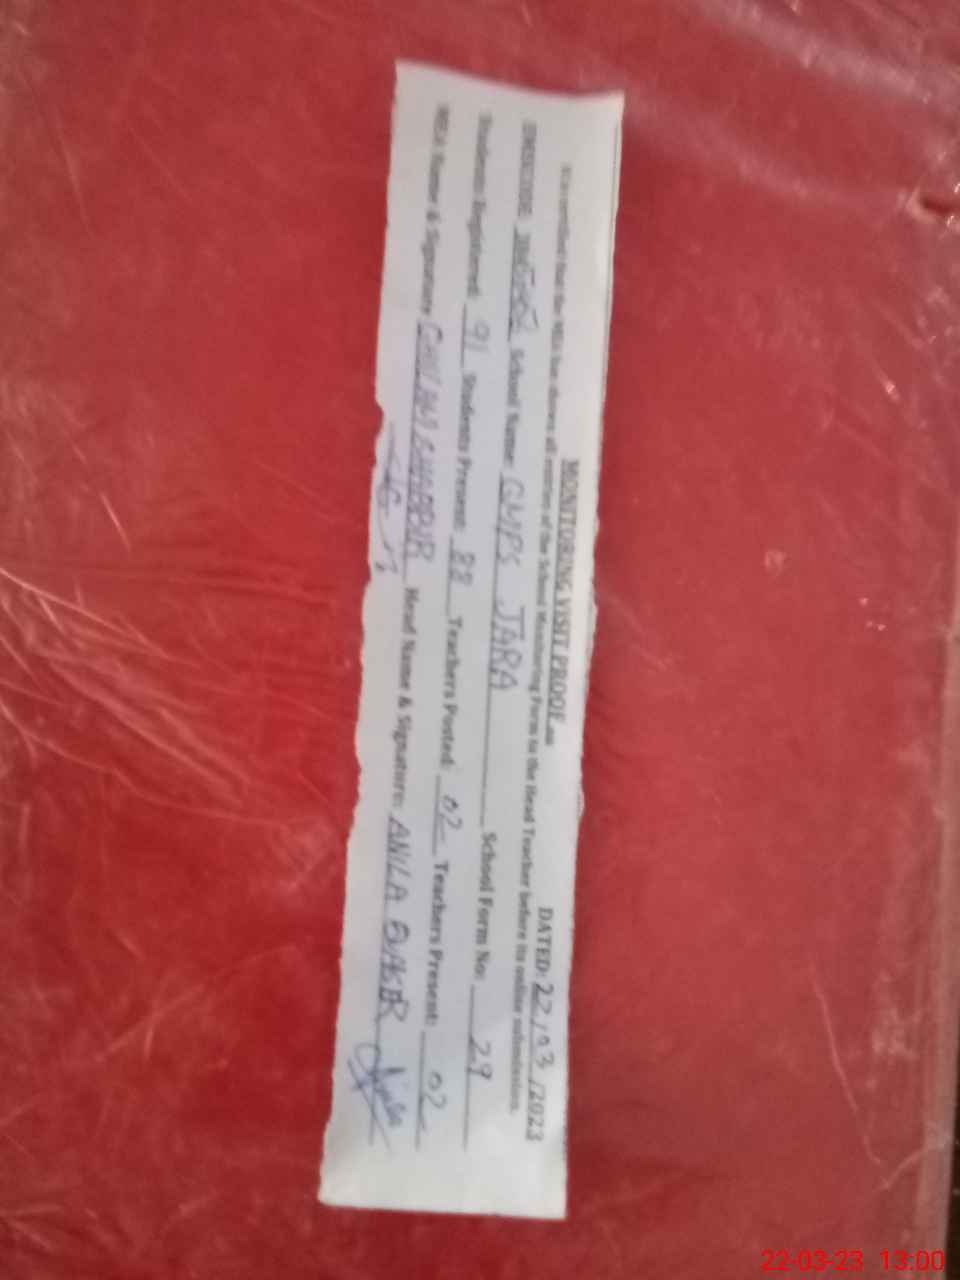 MONITORING VISIT PROOF
DATED: 22/03/2023
It is certified that the MEA has shown all entries of the School Monitoring Form to the Head Teacher before its online submission.
School Name: GMPS JARA School Form No: 29
Students Registered: 91 Students Present: 88 Teachers Posted: 02 Teachers Present: 02
MEA Name & Signature Head Name & Signature: ANILA
22-03-23 13:00